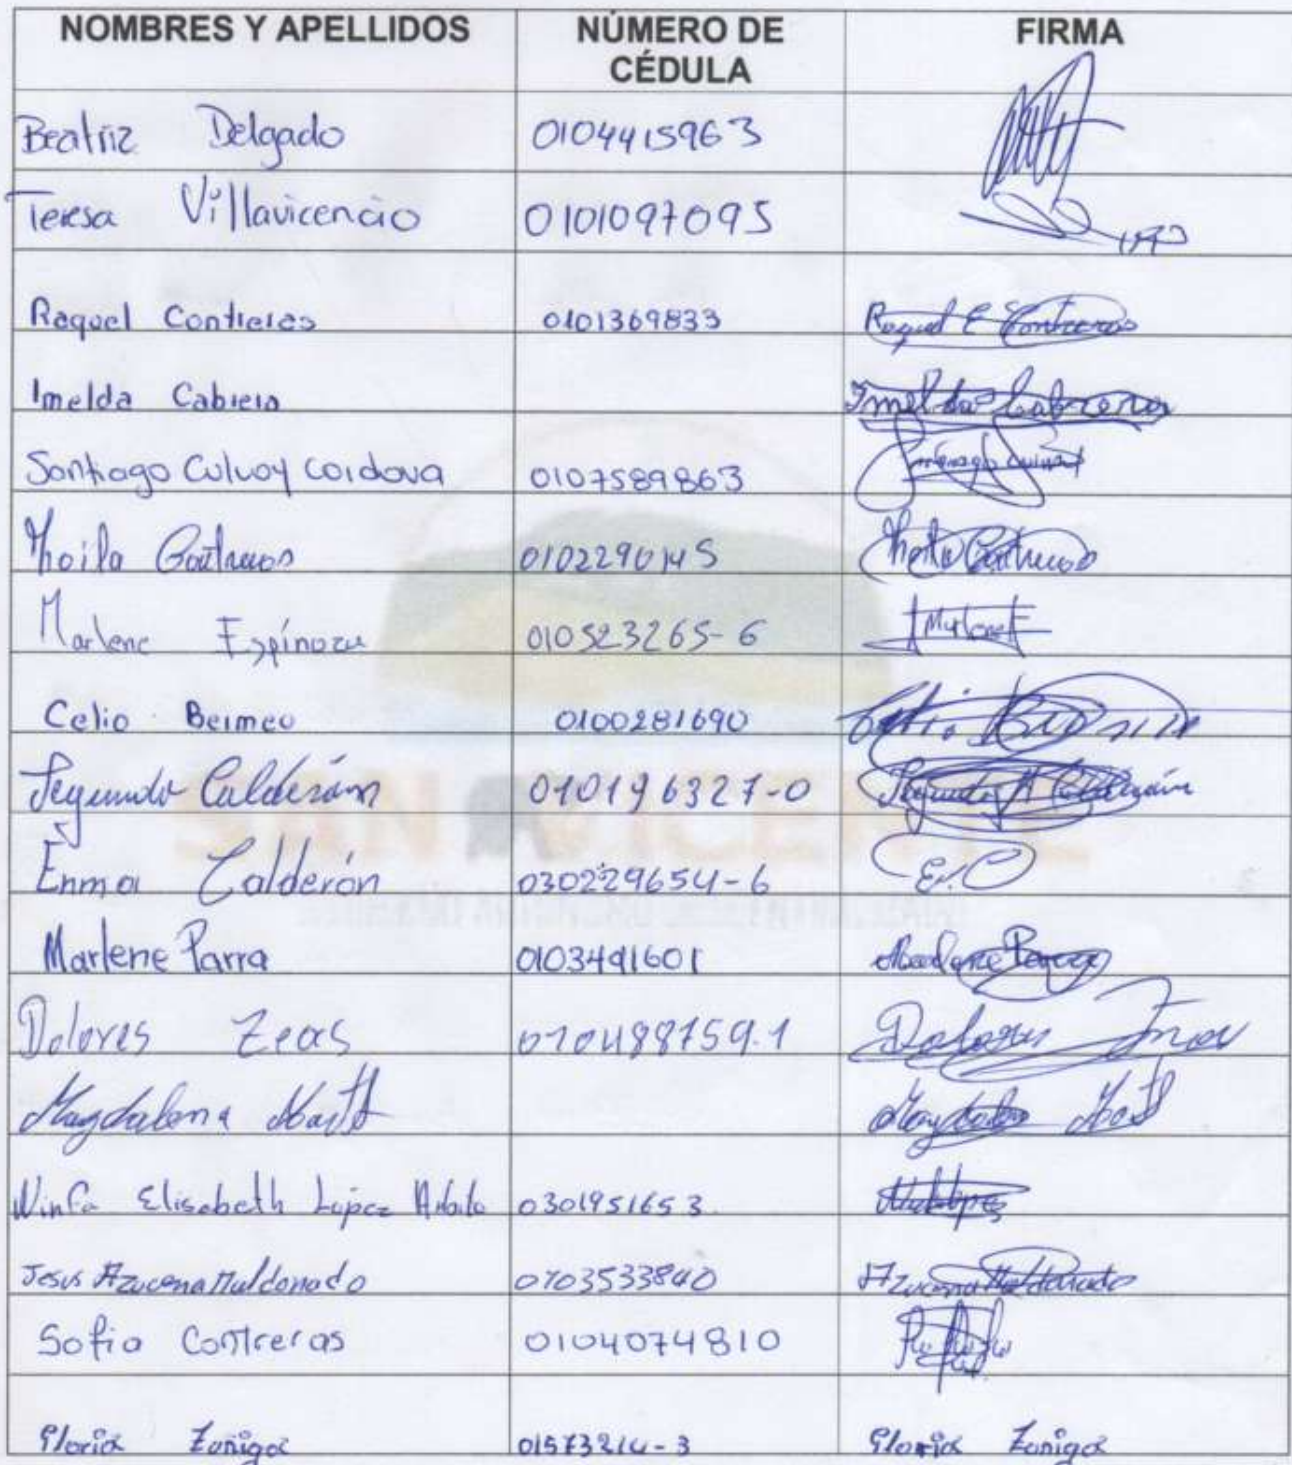 NOMBRES Y APELLIDOS NÚMERO DE CÉDULA FIRMA
Beatriz Delgado 0104415963
Teresa Villavicencio 0101097095
Raquel Contreras 0101369833 Raquel E Contreras
Imelda Cabrera Imelda Cabrera
Santiago Culcay Cordova 0107589863
Zhoila Contreras 0102290145 Zhoila Contreras
Marlene Espínoza 010523265-6 Marlene E
Celio Bermeo 0100281690 Celio
Segundo Calderón 010196327-0 Segundo A Calderón
Enma Calderón 030229654-6 E.C
Marlene Parra 0103491601 Marlene Parra
Dolores Zeas 010488759.1 Dolores
Magdalena Magdalena
Ninfa Elisabeth Lopez 0301951653
Jesus Azucena Maldonado 0703533840 Azucena Maldonado
Sofia Contreras 0104074810
Gloria Zuñiga 01573214-3 Gloria Zuñiga